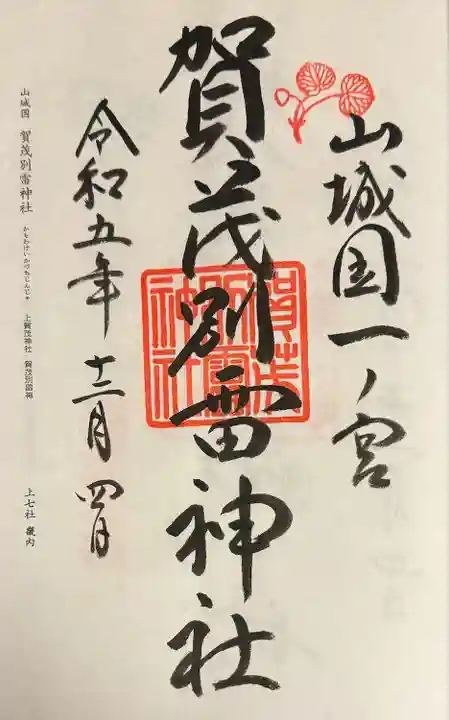 山城国一ノ宮
賀茂別雷神社
賀茂別雷神社
令和五年十二月四日
山城国 賀茂別雷神社 かもわけいかづちじんじゃ 上賀茂神社 賀茂別雷神 上七社 畿内